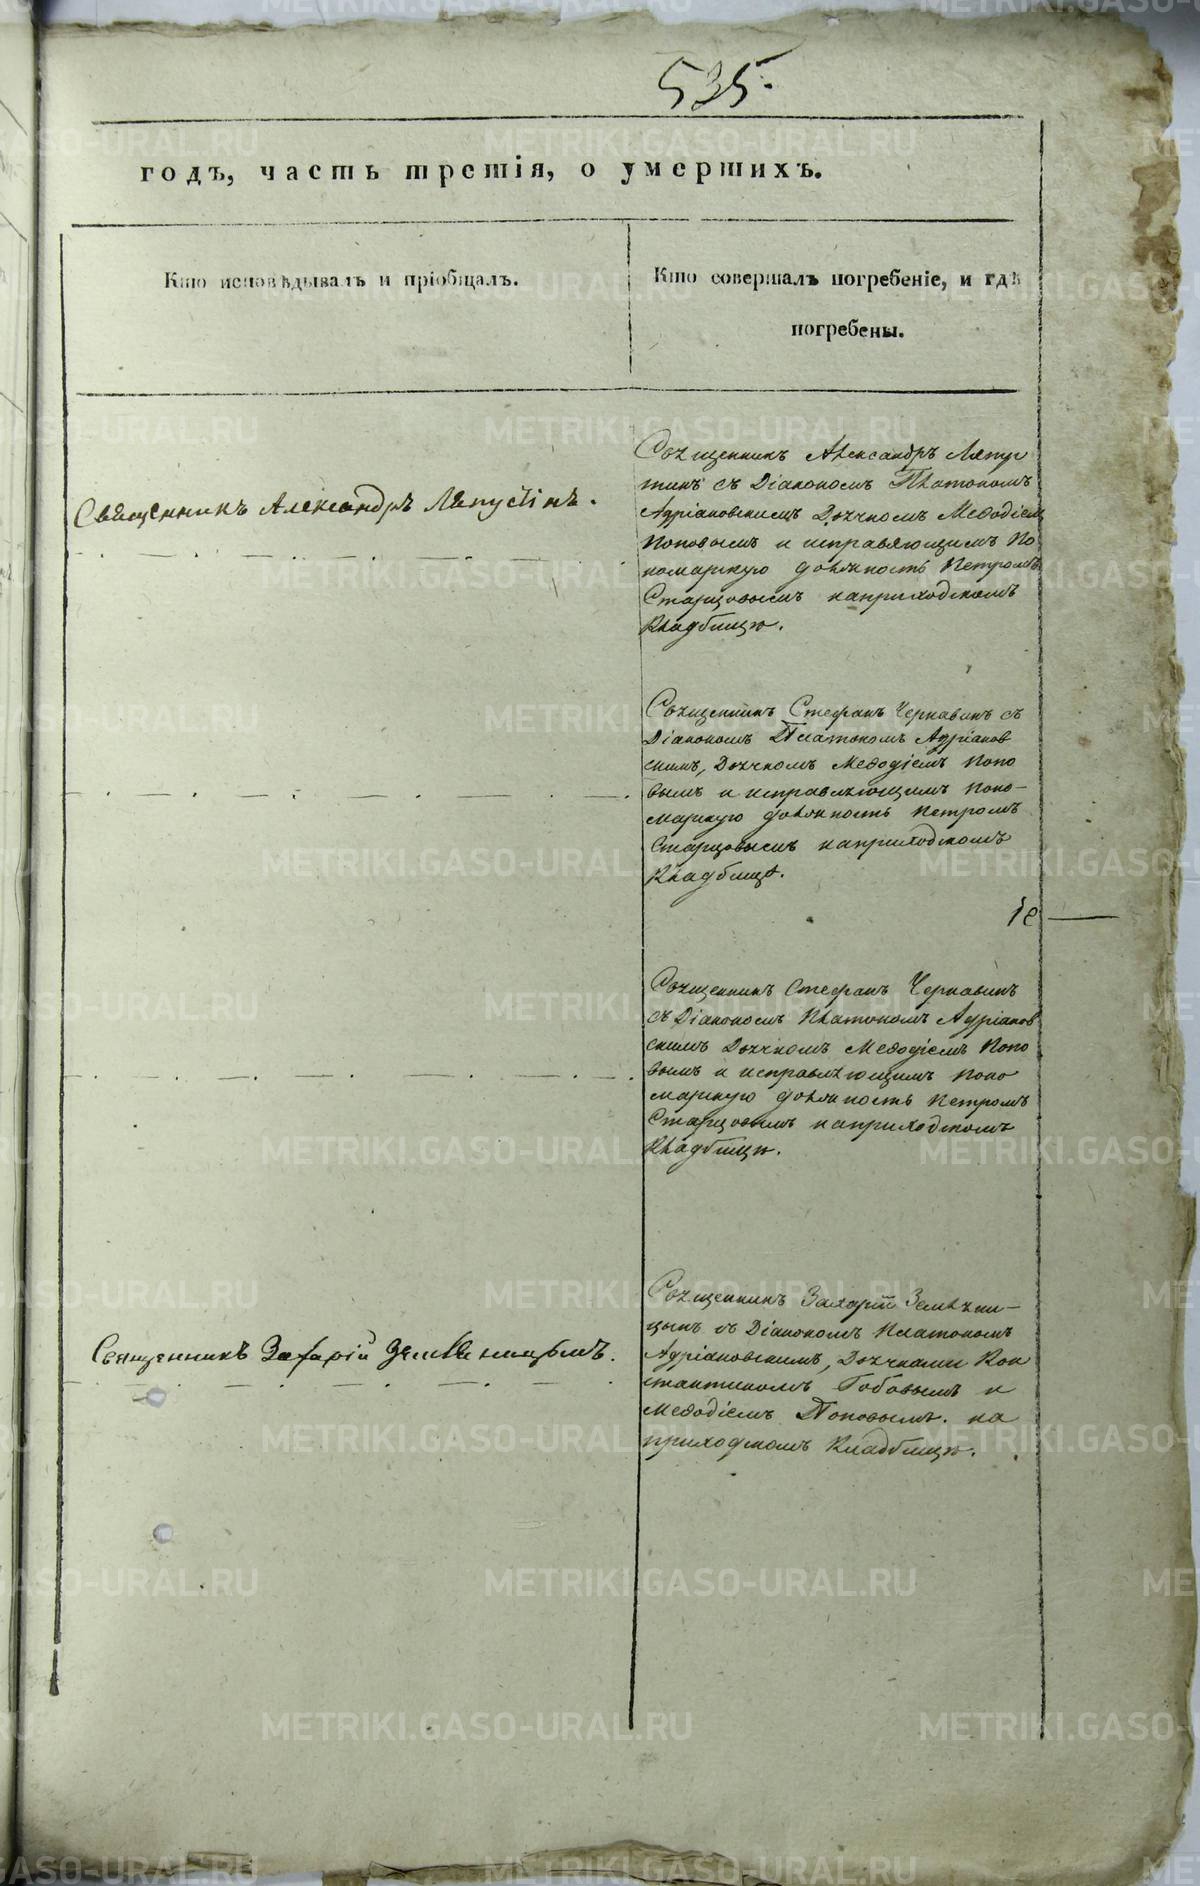 535.
годъ, часть третія, о умершихъ.
Кто исповѣдывалъ и пріобщалъ.
Кто совершалъ погребеніе, и гдѣ
погребены.
Священникъ Александръ Ляпустинъ.
Священникъ Александръ Ляпус
тинъ съ Діакономъ Платономъ
Адріановскимъ Дьячкомъ Меѳодіемъ
Поповымъ и исправляющимъ По
номарскую должность Петромъ
Старцовымъ на приходскомъ
Кладбищѣ.
Священникъ Стефанъ Чернавинъ съ
Діакономъ Платономъ Адріанов
скимъ, Дьячкомъ Меѳодіемъ Попо
вымъ и исправляющимъ Поно-
марскую должность Петромъ
Старцовымъ на приходскомъ
Кладбищѣ.
Священникъ Стефанъ Чернавинъ
съ Діакономъ Платономъ Адріанов
скимъ Дьячкомъ Меѳодіемъ Попо
вымъ и исправляющимъ Поно
марскую должность Петромъ
Старцовымъ на приходскомъ
Кладбищѣ.
Священникъ Захарій Земляницынъ.
Священникъ Захарій Земляни-
цынъ съ Діакономъ Платономъ
Адріановскимъ, Дьячками Кон
стантиномъ Гобовымъ и
Меѳодіемъ Поповымъ. на
приходскомъ Кладбищѣ.
METRIKI.GASO-URAL.RU